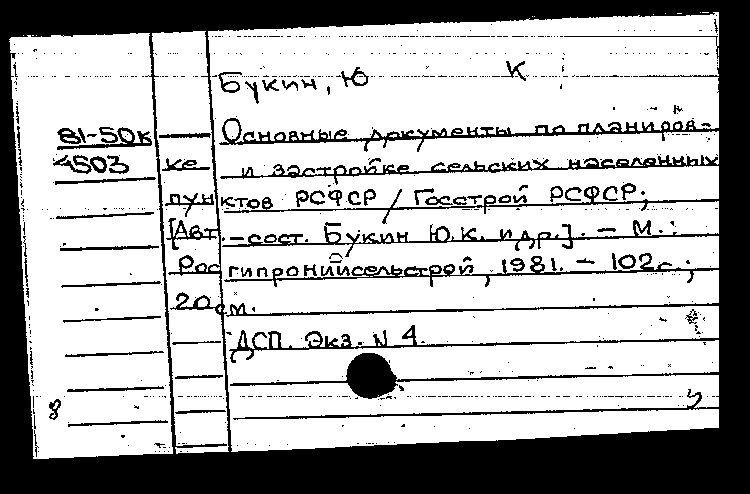 Букин, Ю К
81-50к Основные документы по планиров-
4503 ке и застройке сельских населенных
пунктов РСФСР / Госстрой РСФСР;
[Авт.-сост. Букин Ю.К. и др.]. – М.:
Росгипронийсельстрой, 1981. – 102с.;
20см.
ДСП. Экз. N 4.
8